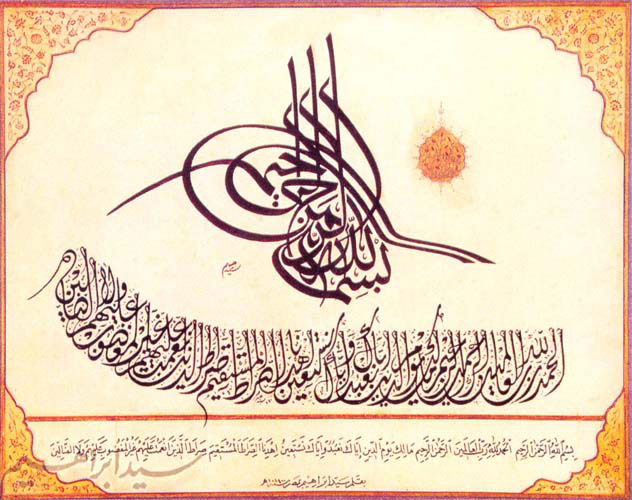 بسم الله الرحمن الرحيم
الحمد لله رب العالمين الرحمن الرحيم مالك يوم الدين إياك نعبد وإياك نستعين اهدنا الصراط المستقيم صراط الذين أنعمت عليهم غير المغضوب عليهم ولا الضالين
بسم الله الرحمن الرحيم الحمد لله رب العالمين الرحمن الرحيم مالك يوم الدين إياك نعبد وإياك نستعين اهدنا الصراط المستقيم صراط الذين أنعمت عليهم غير المغضوب عليهم ولا الضالين
بقلم سيد ابراهيم بمصر
سيد ابراهيم